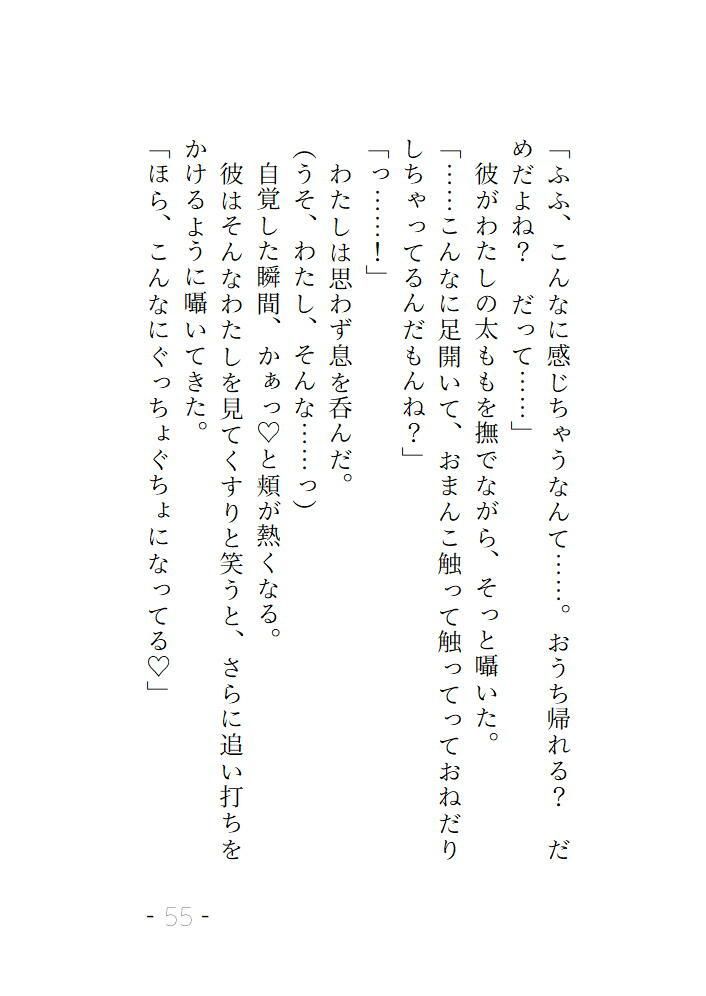 「ふふ、こんなに感じちゃうなんて……。おうち帰れる？　だ
めだよね？　だって……」
　彼がわたしの太ももを撫でながら、そっと囁いた。
「……こんなに足開いて、おまんこ触って触ってっておねだり
しちゃってるんだもんね？」
「っ……！」
　わたしは思わず息を呑んだ。
（うそ、わたし、そんな……っ）
　自覚した瞬間、かぁっ♡と頬が熱くなる。
　彼はそんなわたしを見てくすりと笑うと、さらに追い打ちを
かけるように囁いてきた。
「ほら、こんなにぐっちょぐちょになってる♡」
- 55 -